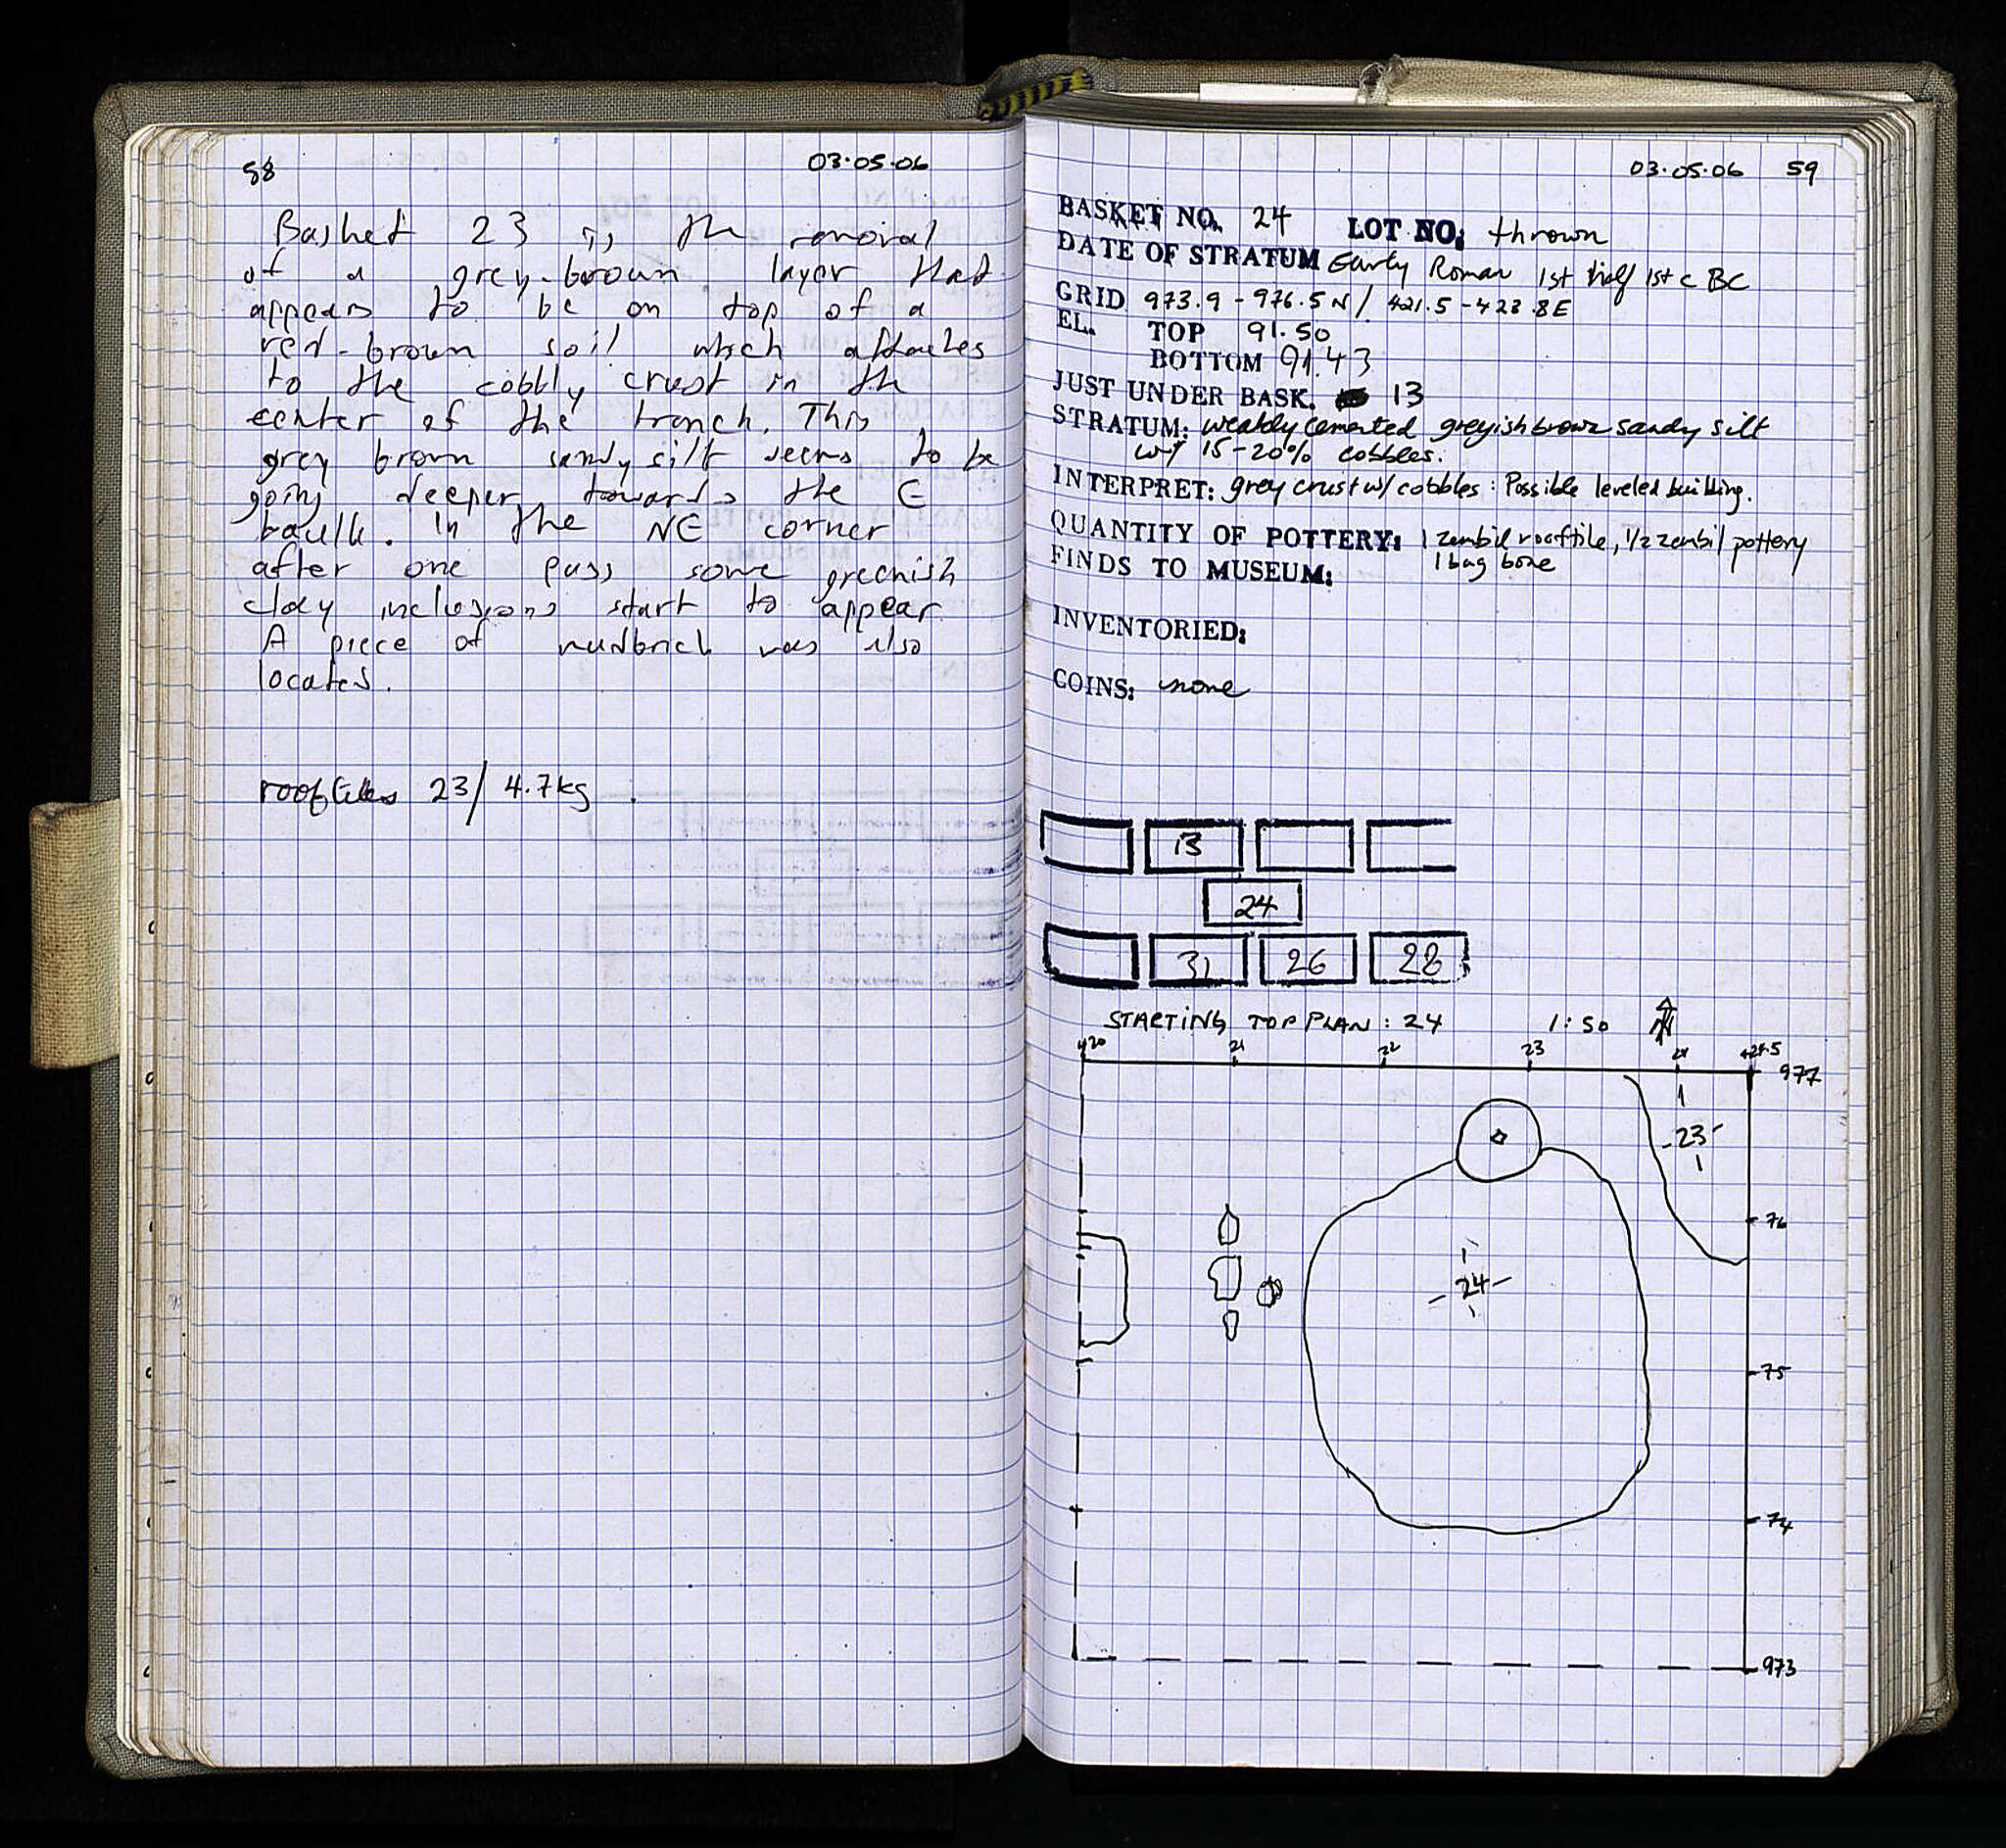 58
03.05.06
Basket 23 is the removal
of a grey-brown layer that
appears to be on top of a
red-brown soil which attaches
to the cobbly crust in the
center of the trench. This
grey brown sandy silt seems to be
going deeper towards the E
baulk. In the NE corner
after one pass some greenish
clay inclusions start to appear
A piece of mudbrick was also
located.
rooftiles 23/ 4.7kg
03.05.06 59
BASKET NO. 24 LOT NO: thrown
DATE OF STRATUM Early Roman 1st half 1st c BC
GRID 973.9 - 976.5 N / 421.5 - 423.8 E
EL. TOP 91.50
BOTTOM 91.43
JUST UNDER BASK. 13
STRATUM: weakly cemented greyish brown sandy silt
w/ 15-20% cobbles.
INTERPRET: grey crust w/ cobbles: Possible leveled building.
QUANTITY OF POTTERY: 1 zembil rooftile, 1/2 zembil pottery
1 bag bone
FINDS TO MUSEUM:
INVENTORIED:
COINS: none
13
24
31 26 28
STARTING TOP PLAN: 24 1:50
420 21 22 23 24 424.5
977
23
76
24
75
74
973